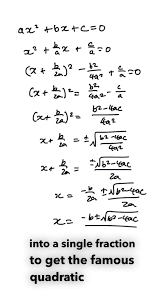 ax² + bx + c = 0
x² + b/a x + c/a = 0
(x + b/2a)² - b²/4a² + c/a = 0
(x + b/2a)² = b²/4a² - c/a
(x + b/2a)² = b²-4ac/4a²
x + b/2a = ±√b²-4ac/4a²
x + b/2a = ±√b²-4ac/2a
x = -b/2a ± √b²-4ac/2a
x = -b±√b²-4ac
into a single fraction
to get the famous
quadratic